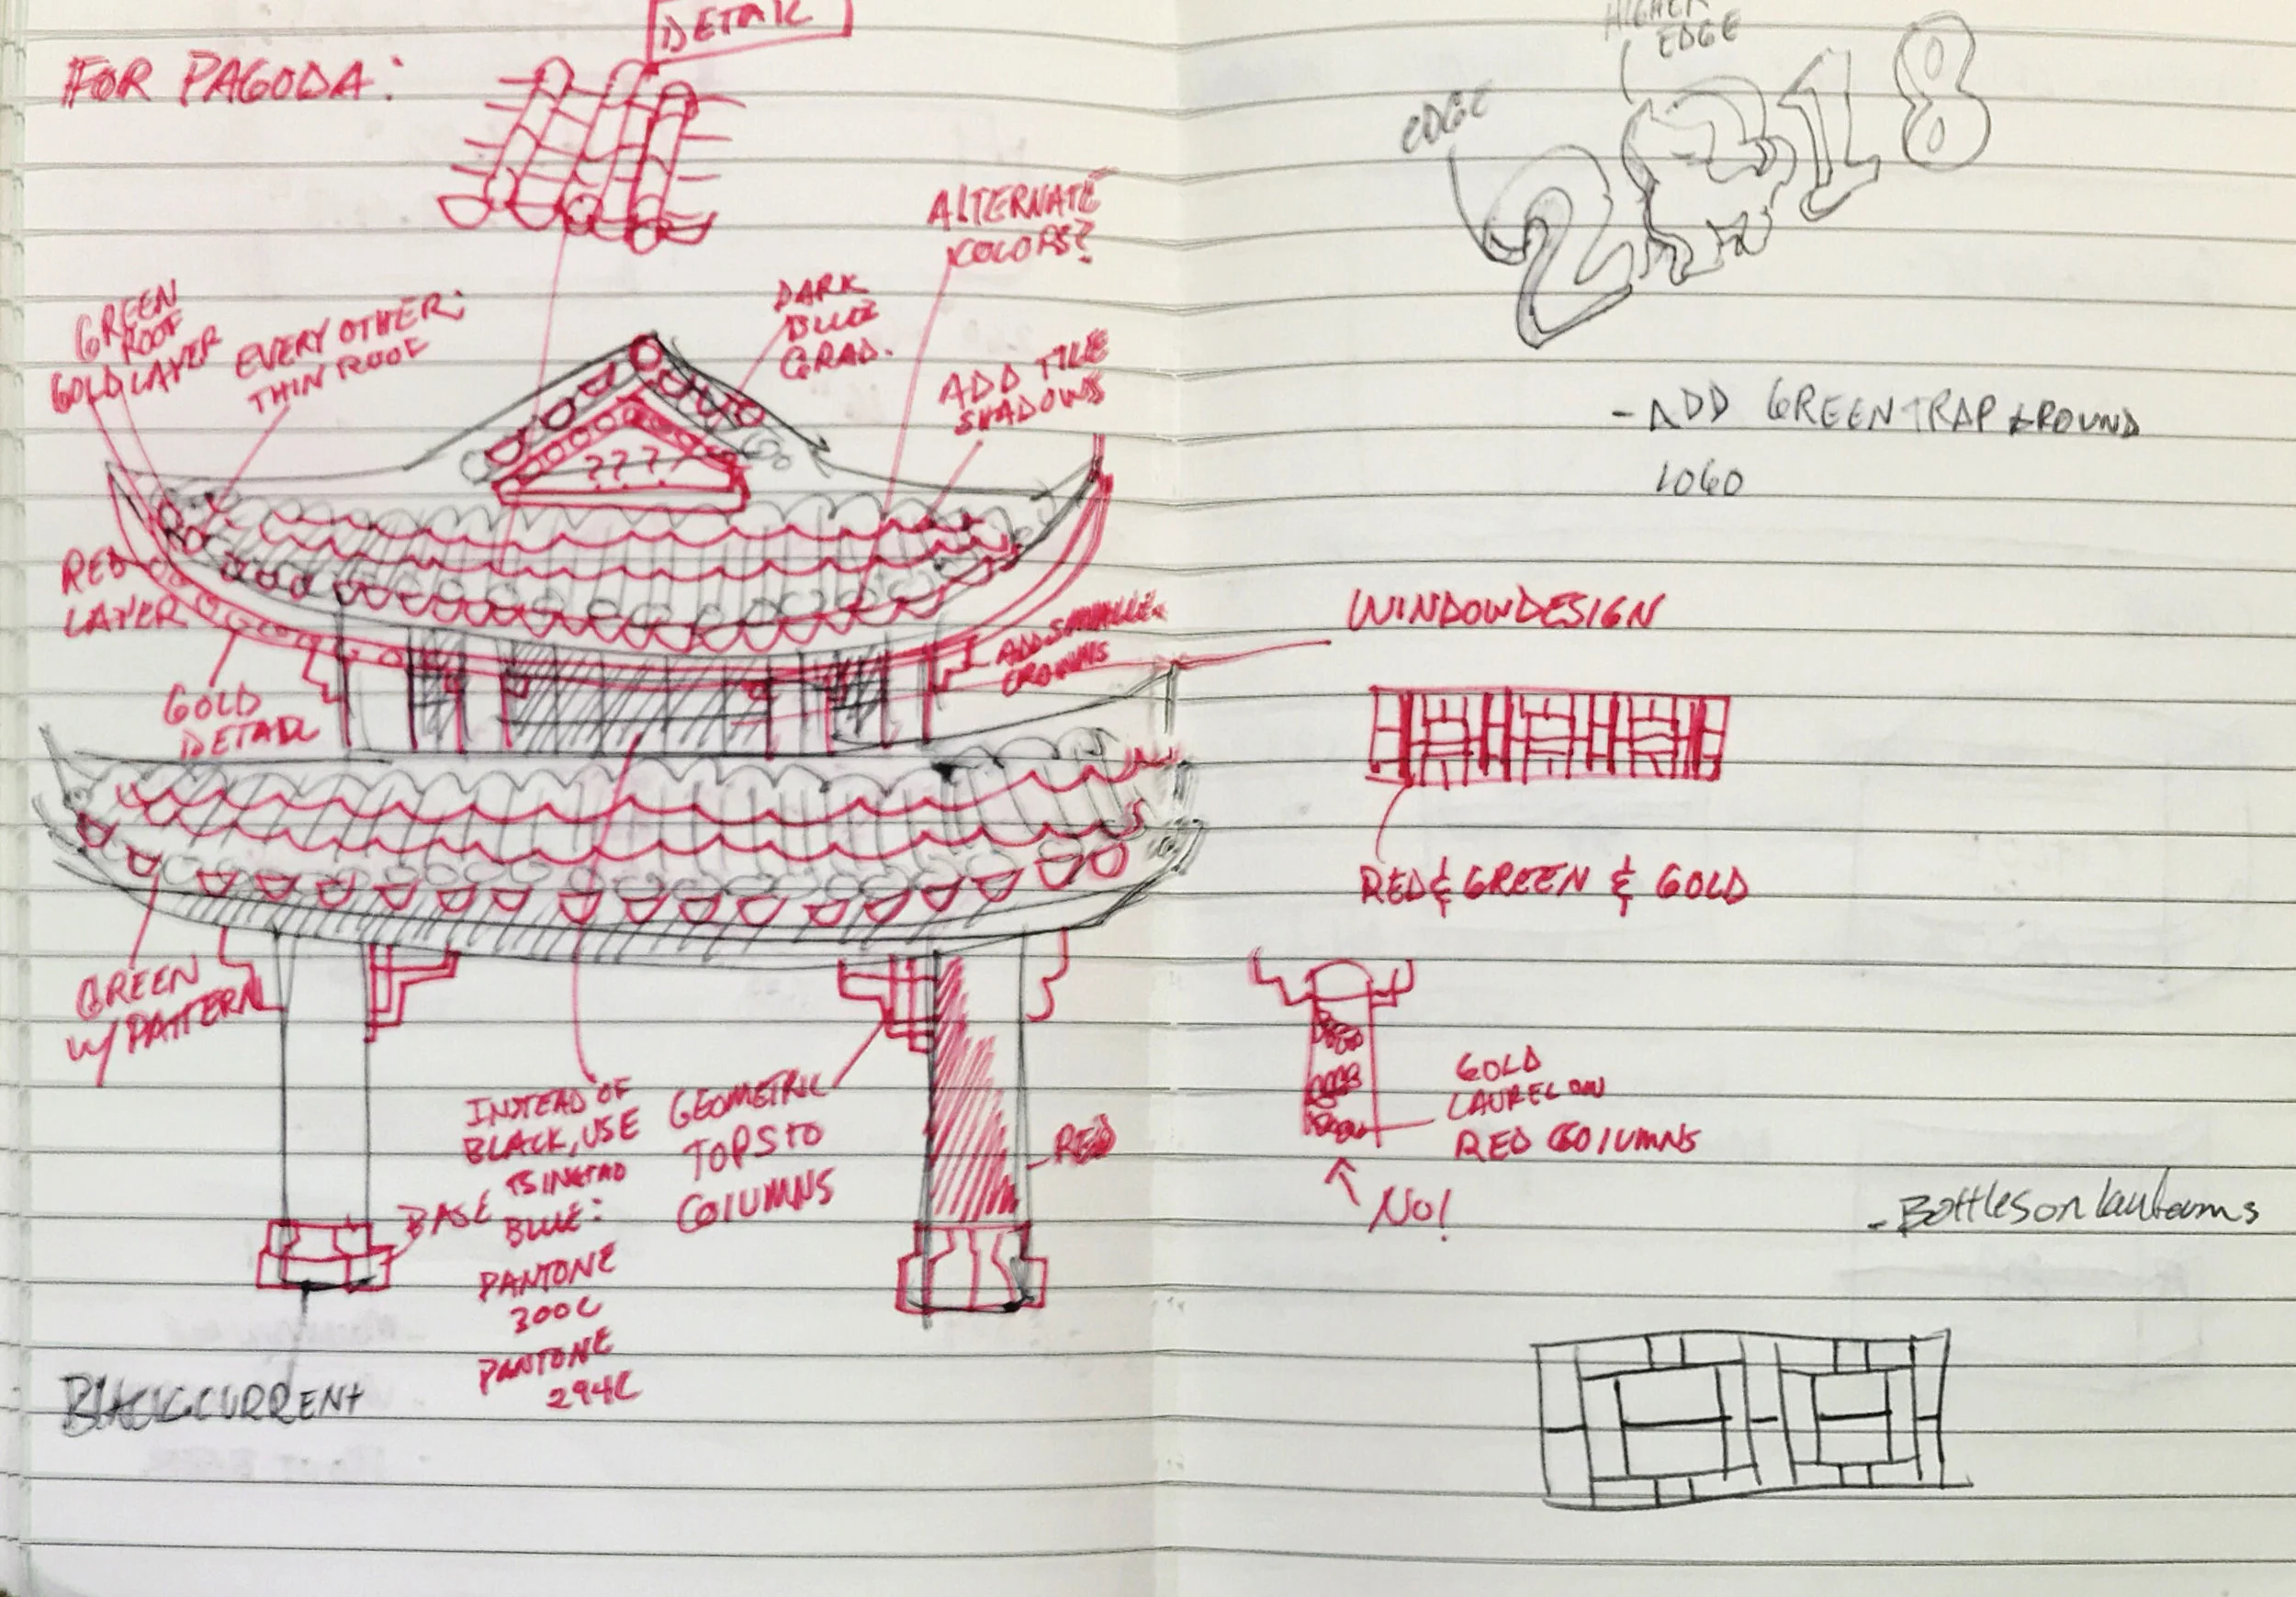 DETAIL
FOR PAGODA:
ALTERNATE
COLORS?
GREEN
ROOF
GOLD LAYER
EVERY OTHER:
THIN ROOF
DARK
BLUE
GRAD.
ADD TILE
SHADOWS
????
RED
LAYER
GOLD
DETAIL
ADD SMALLER
CROWNS
GREEN
W/ PATTERN
INSTEAD OF
BLACK, USE
TSINGTAO
BLUE:
PANTONE
300C
PANTONE
294C
GEOMETRIC
TOPS TO
COLUMNS
RED
BASE
BLACK CURRENT
HIGHER
EDGE
EDGE
2018
- ADD GREEN TRAP AROUND
LOGO
WINDOW DESIGN
RED & GREEN & GOLD
GOLD
LAUREL ON
RED COLUMNS
NO!
- Bottles on lanterns